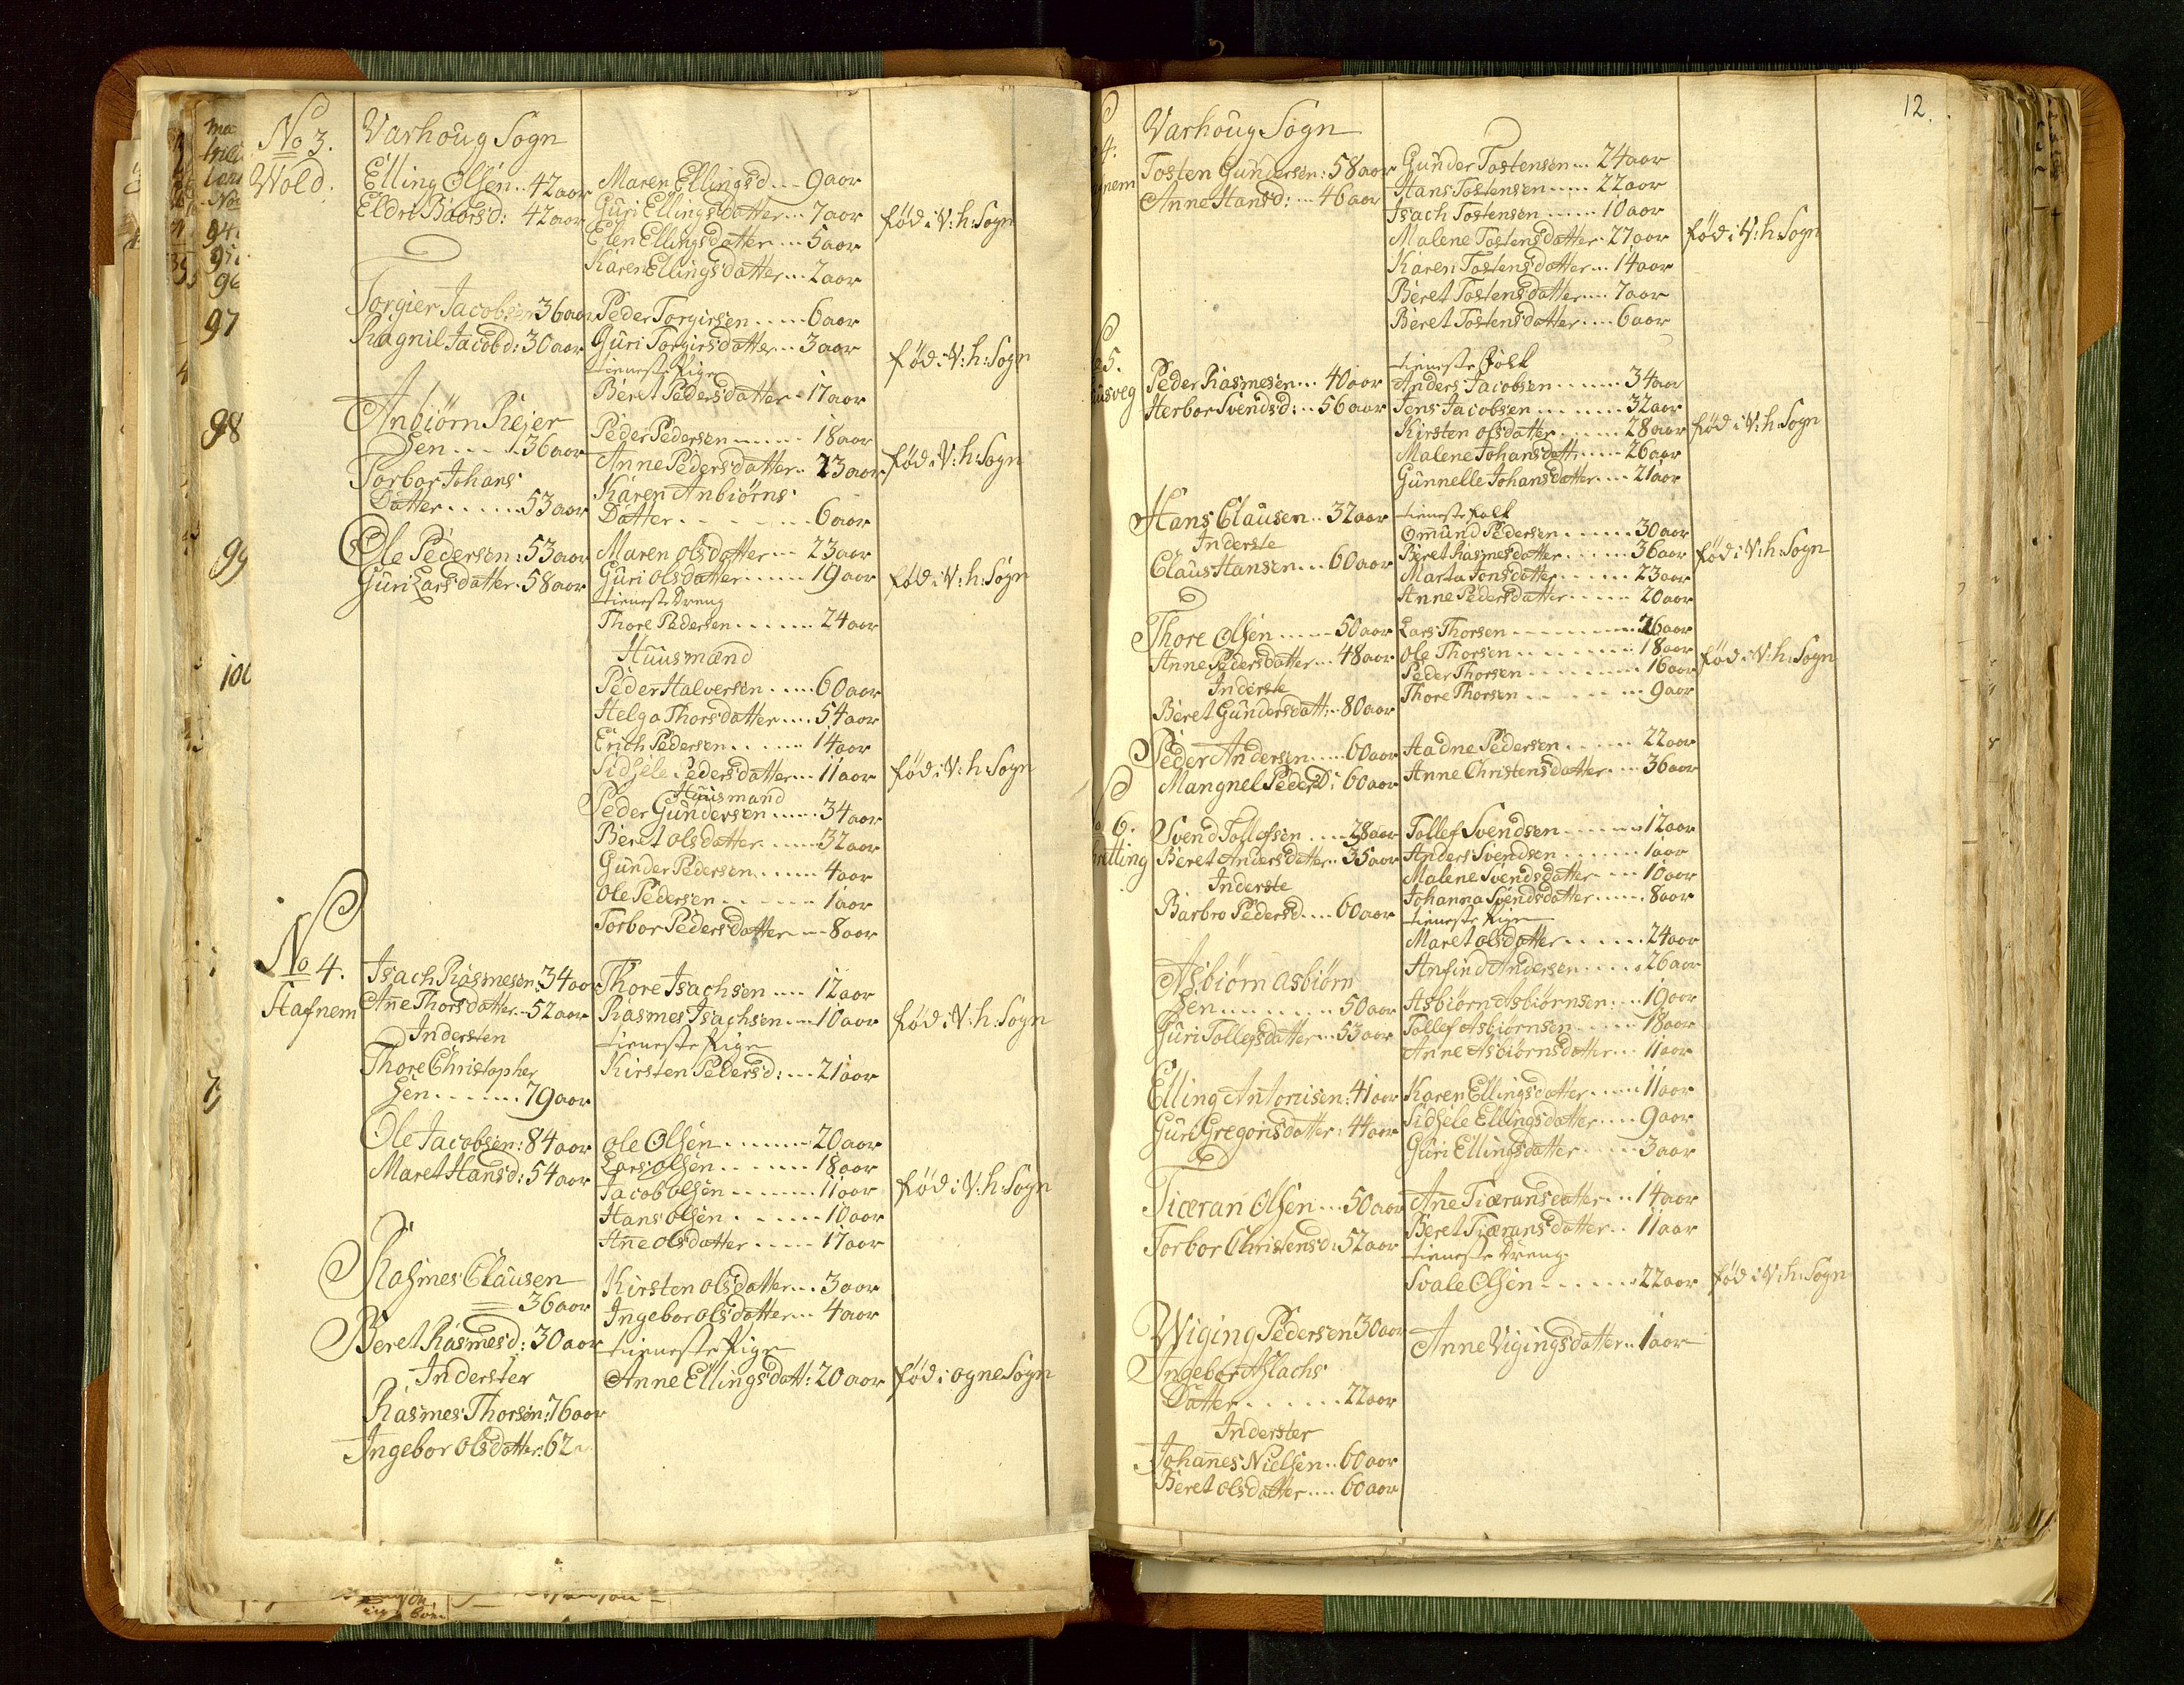 No 3.
Wold.
Varhoug Sogn
Elling Olsen .. 42 aar
Eldri Baarsd: 42 aar
Maren Ellingsd ... 9 aar
Guri Ellingsdatter ... 7 aar
Elen Ellingsdatter ... 5 aar
Karen Ellingsdatter ... 2 aar
fød i V: h: Sogn
97
Torgier Jacobsen 36 aar
Ragnil Jacobd: 30 aar
Peder Torgirsen ..... 6 aar
Guri Torgirsdatter ... 3 aar
tieneste Pige
Beret Pedersdatter .. 17 aar
fød i V: h: Sogn
98
Anbiørn Reier
Sen ... 36 aar
Torbor Johans
Datter ...... 53 aar
Peder Pedersen ...... 18 aar
Anne Pedersdatter .. 23 aar
Karen Anbiørns
Datter ........ 6 aar
fød i V: h: Sogn
99
Ole Pedersen : 53 aar
Guri Larsdatter . 58 aar
Maren olsdatter ... 23 aar
Guri olsdatter ...... 19 aar
tieneste Dreng
Thore Pedersen ....... 24 aar
fød i V: h: Sogn
100
Huusmænd
Peder Halversen ..... 60 aar
Helga Thorsdatter .... 54 aar
Erich Pedersen ...... 14 aar
Sidsele Pedersdatter ... 11 aar
fød i V: h: Sogn
Huusmand
Peder Gundersen ..... 34 aar
Beret olsdatter ...... 32 aar
Gunder Pedersen ...... 4 aar
Ole Pedersen ....... 1 aar
Torbor Pedersdatter ... 8 aar
No 4.
Hafnem
Isach Rasmesen : 34 aar
Anne Thorsdatter .. 52 aar
Indersten
Thore Christopher
Sen ....... 79 aar
Thore Isachsen .... 12 aar
Rasmes Isachsen ... 10 aar
tieneste Pige
Kirsten Pedersd: ... 21 aar
fød i V: h: Sogn
Ole Jacobsen : 84 aar
Maret Hansd: 54 aar
ole Olsen ....... 20 aar
Lars olsen ....... 18 aar
Jacob olsen ....... 11 aar
Hans olsen ...... 10 aar
Anne olsdatter ..... 17 aar
fød i V: h: Sogn
Rasmes Clausen
36 aar
Beret Rasmesd: 30 aar
Inderster
Rasmes Thorsen : 76 aar
Ingebor olsdatter : 62
Kirsten olsdatter ... 3 aar
Ingebor olsdatter ... 4 aar
tieneste Pige
Anne Ellingsdatt: 20 aar
fød i ogne Sogn
12.
4.
Varhoug Sogn
Tosten Gundersen : 58 aar
Anne Hansd: ... 46 aar
Gunder Tostensen ... 24 aar
Hans Tostensen ..... 22 aar
Isach Tostensen ...... 10 aar
Malene Tostensdatter . 27 aar
Karen Tostensdatter ... 14 aar
Beret Tostensdatter .... 7 aar
Beret Tostensdatter .... 6 aar
fød i V: h: Sogn
5.
Peder Rasmesen ... 40 aar
Herbor Svendsd: .. 56 aar
tieneste Folk
Anders Jacobsen ...... 34 aar
Jens Jacobsen ....... 32 aar
Kirsten olsdatter ..... 28 aar
Malene Johansdatt ..... 26 aar
Gunnelle Johansdatter ... 21 aar
fød i V: h: Sogn
Hans Clausen .. 32 aar
Inderste
Claus Hansen ... 60 aar
tieneste folk
Ommund Pedersen ...... 30 aar
Beret Rasmesdatter ..... 36 aar
Marta Jonsdatter ..... 23 aar
Anne Pedersdatter ..... 20 aar
fød i V: h: Sogn
Thore Olsen ..... 50 aar
Anne Pedersdatter ... 48 aar
Inderste
Beret Gundersdatt: .. 80 aar
Lars Thorsen ......... 26 aar
Ole Thorsen ......... 18 aar
Peder Thorsen ........ 16 aar
Thore Thorsen ........ 9 aar
fød i V: h: Sogn
Peder Andersen ..... 60 aar
Mangnel Pedersd: 60 aar
Aadne Pedersen ...... 22 aar
Anne Christensdatter ... 36 aar
6.
Svend Tollefsen .... 38 aar
Beret Andersdatter .. 35 aar
Inderste
Barbro Pedersd .... 60 aar
Tollef Svendsen ....... 12 aar
Anders Svendsen ...... 1 aar
Malene Svendsdatter ... 10 aar
Johanna Svendsdatter .... 8 aar
tieneste Pige
Maret olsdatter ....... 24 aar
Asbiørn Asbiørn
Sen ........ 50 aar
Guri Tollefsdatter ... 53 aar
Anfind Andersen ..... 26 aar
Asbiørn Asbiørnsen .... 19 aar
Tollef Asbiørnsen ..... 18 aar
Anne Asbiørnsdatter ... 11 aar
Elling Antonisen : 41 aar
Guri Gregorisdatter : 44 aar
Karen Ellingsdatter ..... 11 aar
Sidsele Ellingsdatter .... 9 aar
Guri Ellingsdatter ..... 3 aar
Tiæran Olsen ... 50 aar
Torbor Christensd: 52 aar
Anne Tiæransdatter ... 14 aar
Beret Tiæransdatter .. 11 aar
tieneste Dreng
Svale Olsen ....... 22 aar
fød i V: h: Sogn
Wiging Pedersen 30 aar
Ingebor Aslachs
Datter ...... 22 aar
Inderster
Johannes Nielsen .. 60 aar
Beret olsdatter .... 60 aar
Anne Vigingsdatter .. 1 aar